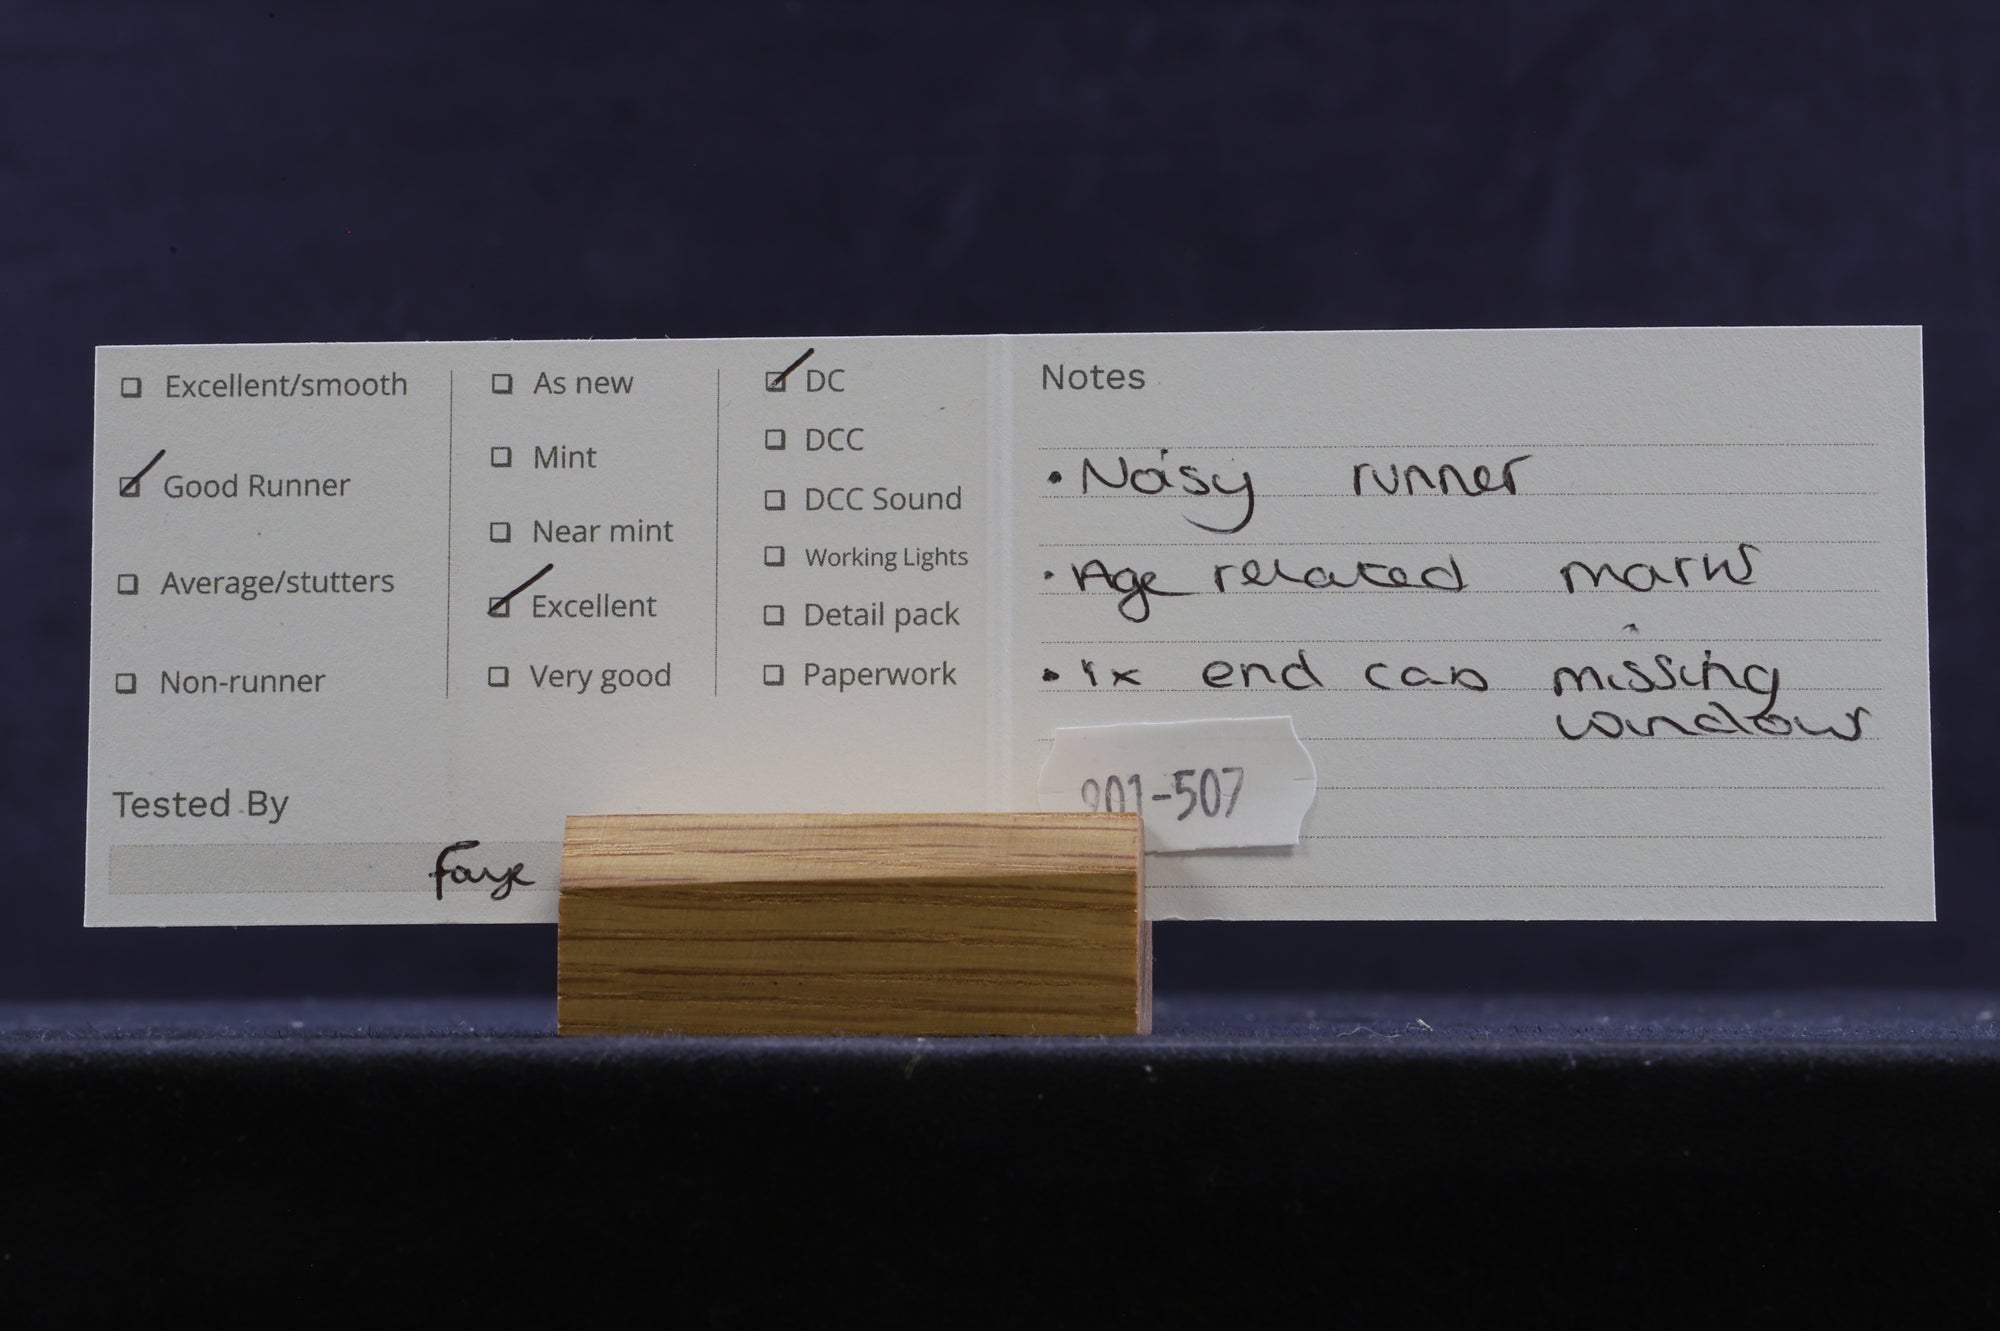 Excellent/smooth
Good Runner
Average/stutters
Non-runner
As new
Mint
Near mint
Excellent
Very good
DC
DCC
DCC Sound
Working Lights
Detail pack
Paperwork
Tested By
Faye
Notes
• Noisy runner
• Age related marks
• 1x end cab missing
windows
901-507